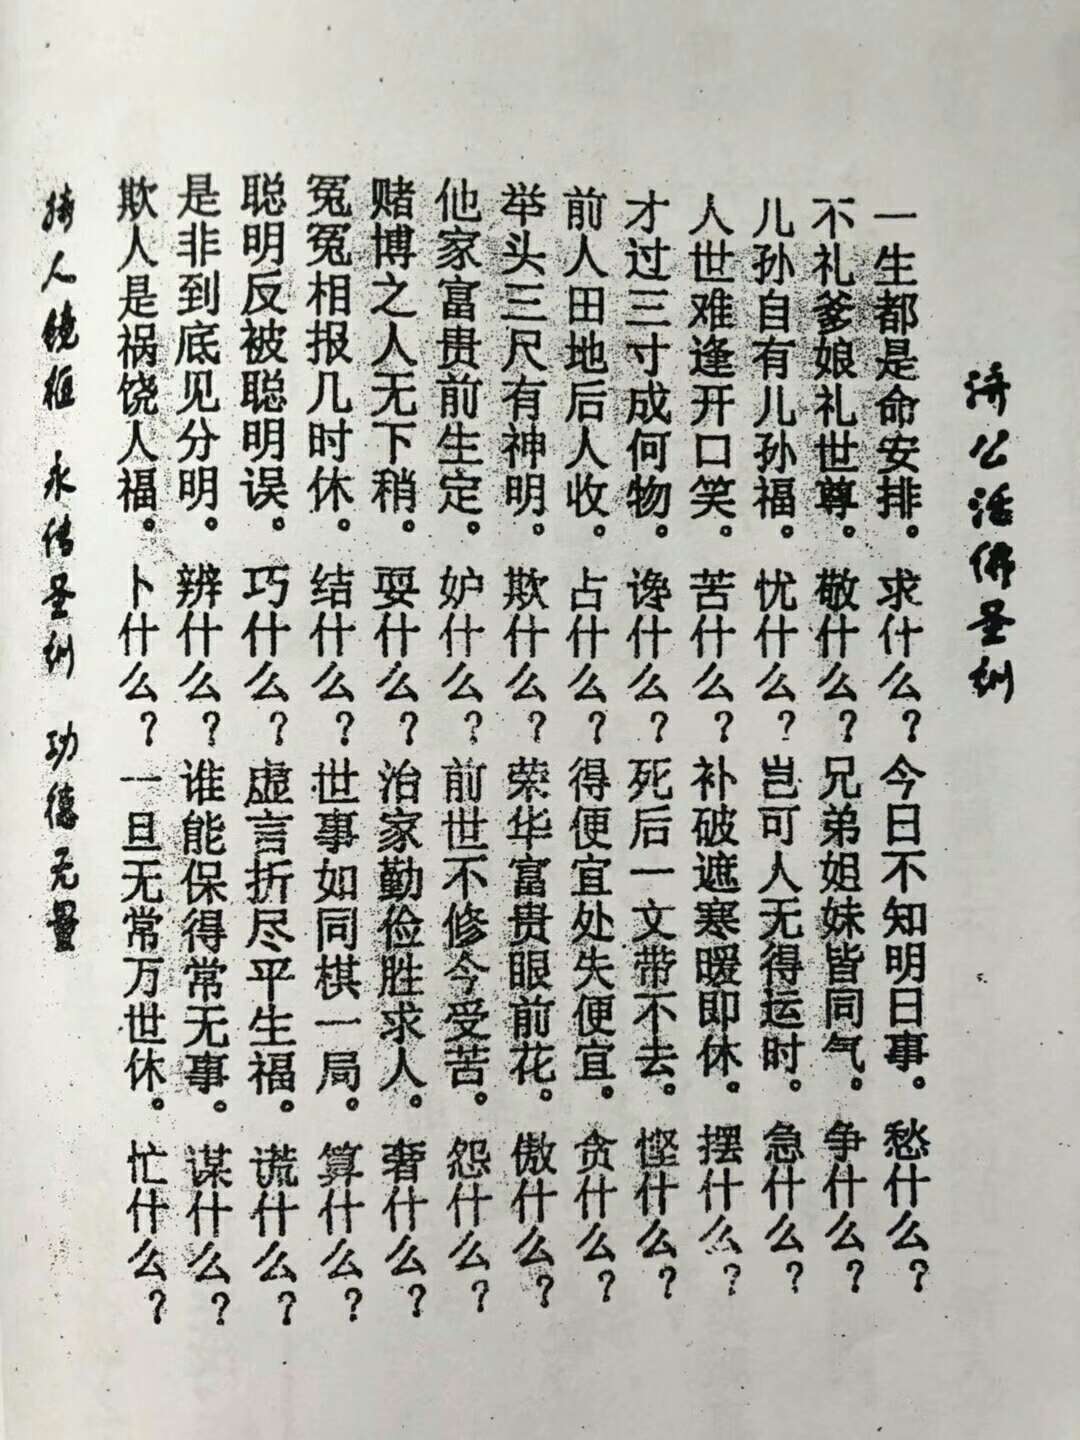 济公活佛圣训
一生都是命安排。求什么？今日不知明日事。愁什么？
不礼爹娘礼世尊。敬什么？兄弟姐妹皆同气。争什么？
儿孙自有儿孙福。忧什么？岂可人无得运时。急什么？
人世难逢开口笑。苦什么？补破遮寒暖即休。摆什么？
才过三寸成何物。谗什么？死后一文带不去。悭什么？
前人田地后人收。占什么？得便宜处失便宜。贪什么？
举头三尺有神明。欺什么？荣华富贵眼前花。傲什么？
他家富贵前生定。妒什么？前世不修今受苦。怨什么？
赌博之人无下稍。耍什么？治家勤俭胜求人。奢什么？
冤冤相报几时休。结什么？世事如同棋一局。算什么？
聪明反被聪明误。巧什么？虚言折尽平生福。谎什么？
是非到底见分明。辨什么？谁能保得常无事。谋什么？
欺人是祸饶人福。卜什么？一旦无常万世休。忙什么？
人 永传圣训 功德无量